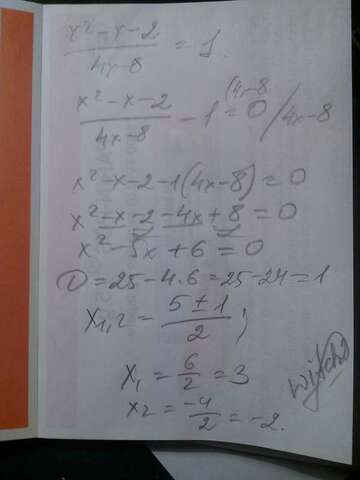 x² - x - 2 / 4x - 8 = 1.
x² - x - 2 / 4x - 8 - 1 (4x - 8 = 0 / 4x - 8
x² - x - 2 - 1(4x - 8) = 0
x² - x - 2 - 4x + 8 = 0
x² - 5x + 6 = 0
D = 25 - 4·6 = 25 - 24 = 1
x₁,₂ = 5 ± 1 / 2 ;
x₁ = 6/2 = 3
x₂ = -4/2 = -2.